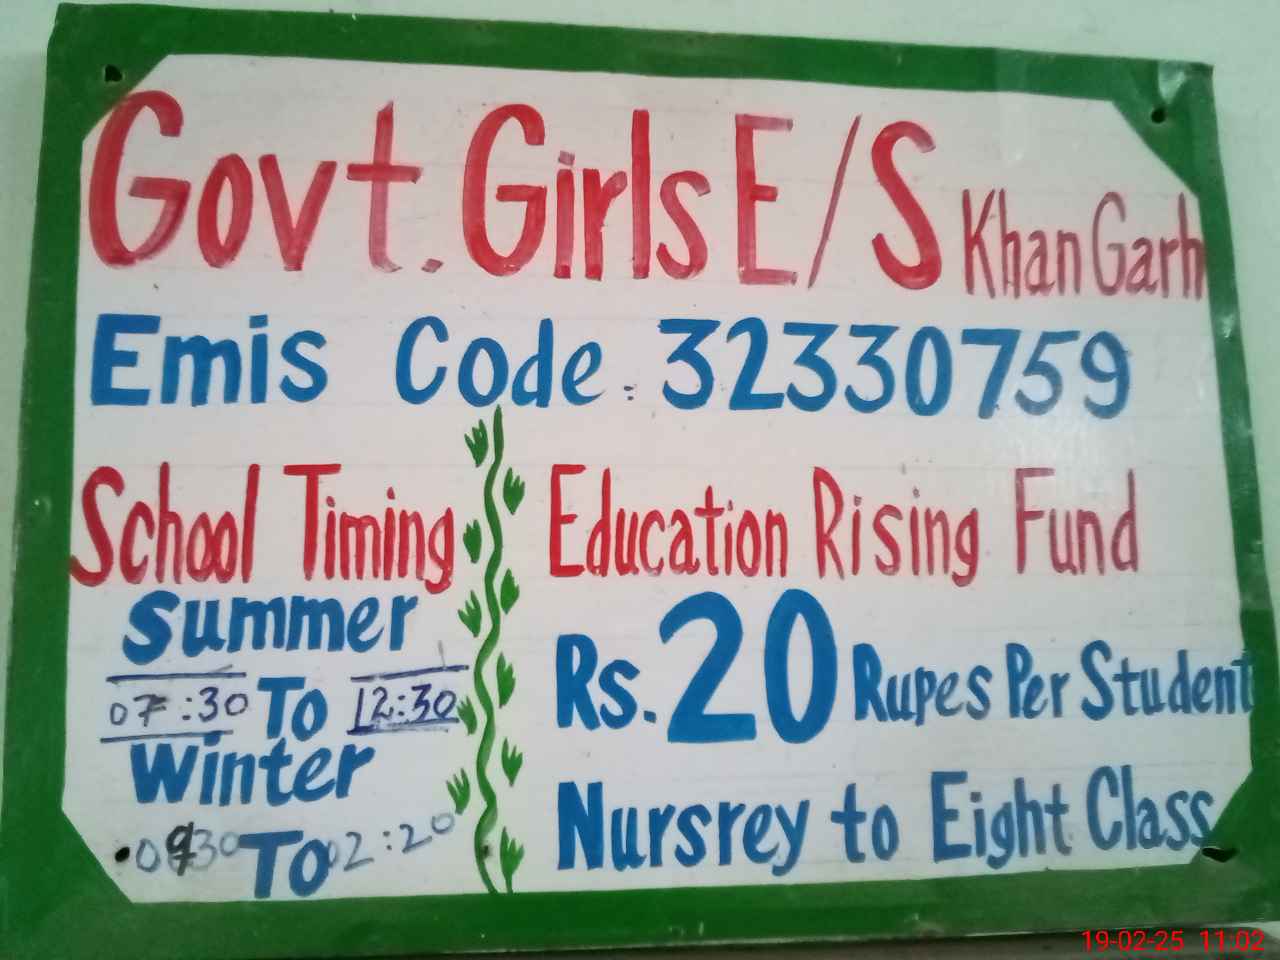 Govt. Girls E/S Khan Garh
Emis Code : 32330759
School Timing
Summer
07:30 To 12:30
Winter
To 02:20
Education Rising Fund
Rs. 20 Rupes Per Student
Nursrey to Eight Class
19-02-25 11:02